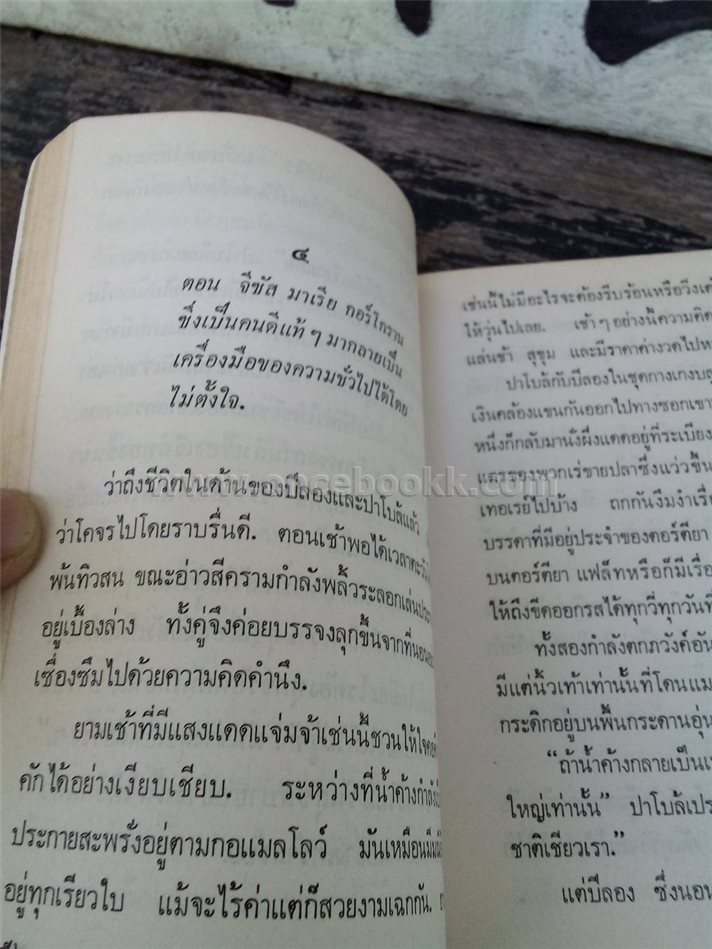 ๔
ตอน จีซัส มาเรีย กอร์โกราน
ซึ่งเป็นคนดีแท้ๆ มากลายเป็น
เครื่องมือของความชั่วไปได้โดย
ไม่ตั้งใจ.
ว่าถึงชีวิตในด้านของปีลองและปาโบล้แล้ว
ว่าโคจรไปโดยราบรื่นดี. ตอนเช้าพอได้เวลาตะวัน
พ้นทิวสน ขณะอ่าวสีครามกำลังพลิ้วระลอกเล่น
อยู่เบื้องล่าง ทั้งคู่จึงค่อยบรรจงลุกขึ้นจากที่นอน
เซื่องซึมไปด้วยความคิดคำนึง.
ยามเช้าที่มีแสงแดดแจ่มจ้าเช่นนี้ชวนให้ใจ
คักได้อย่างเงียบเชียบ. ระหว่างที่น้ำค้างกำลัง
ประกายสะพรั่งอยู่ตามกอแมลโลว์ มันเหมือน
อยู่ทุกเรียวใบ แม้จะไร้ค่าแต่ก็สวยงามเฉกกัน.
เช่นนี้ไม่มีอะไรจะต้องรีบร้อนหรือวิ่งเต้
ให้วุ่นไปเลย. เช้าๆอย่างนี้ความคิด
แล่นช้า สุขุม และมีราคาค่างวดไป
ปาโบล้กับปีลองในชุดกางเกง
เงินคล้องแขนกันออกไปทางซอกเขา
หนึ่งก็กลับมานั่งผึ่งแดดอยู่ที่ระเบียง
แตรของพวกเร่ขายปลาซึ่งแว่วขึ้น
เทอเรย์ไปบ้าง ถกกันงึมงำเรื่
บรรดาที่มีอยู่ประจำของตอร์ตียา
บนตอร์ตียา แฟล็ทหรือก็มีเรื่อ
ให้ถึงขีดออกรสได้ทุกวี่ทุกวัน
ทั้งสองกำลังตกภวังค์
มีแต่นิ้วเท้าเท่านั้นที่โดนแม
กระดิกอยู่บนพื้นกระดานอุ่น
“ถ้าน้ำค้างกลายเป็น
ใหญ่เท่านั้น” ปาโบล้
ชาติเชียวเรา.”
แต่ปีลอง ซึ่งนอน
www.oncebookk.com